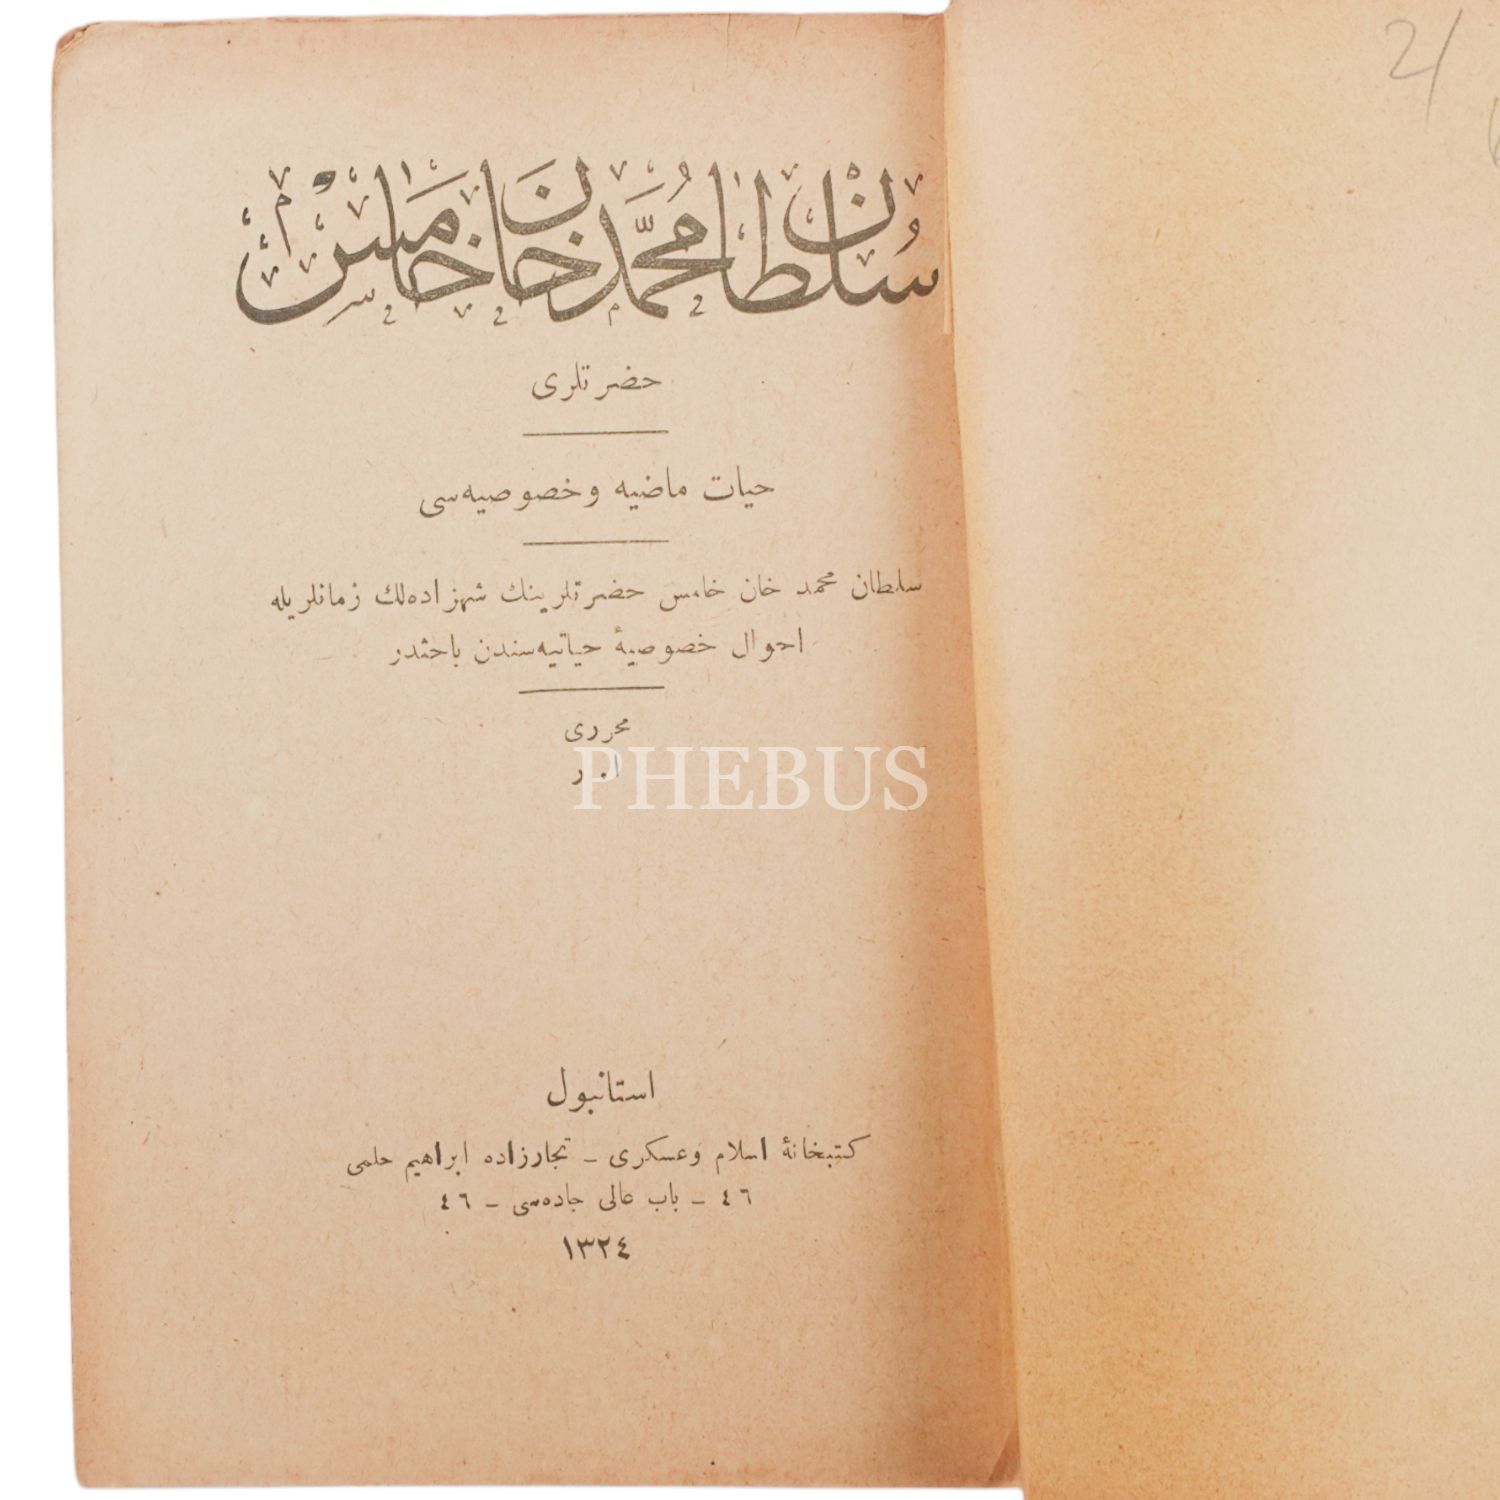 سلطان محمد خان خامس
حضرتلری
حیات ماضیه و خصوصیه‌سی
سلطان محمد خان خامس حضرتلرینك شهزاده‌لك زمانلریله
احوال خصوصیهٔ حیاتیه‌سندن باحثدر
محرری
PHEBUS
استانبول
كتبخانهٔ اسلام وعسكری – تجارزاده ابراهیم حلمی
٤٦ – باب عالی جاده‌سی – ٤٦
١٣٢٤
21